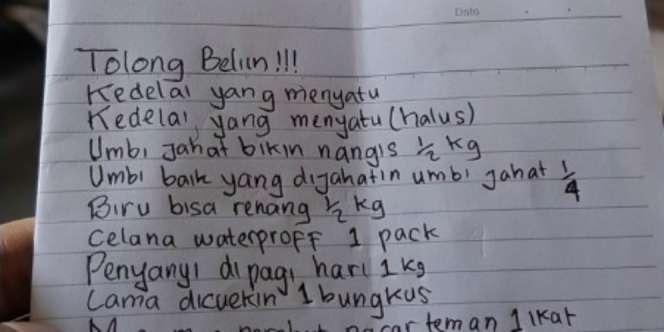 Date
Tolong Beliin!!!
Kedelai yang menyatu
Kedelai, yang menyatu (halus)
Umbi jahat bikin nangis 1/2 kg
Umbi baik yang dijahatin umbi jahat 1/4
Biru bisa renang 1/2 kg
Celana waterproff 1 pack
Penyanyi di pagi hari 1 kg
Lama dicuekin 1 bungkus
pacar teman 1 ikat